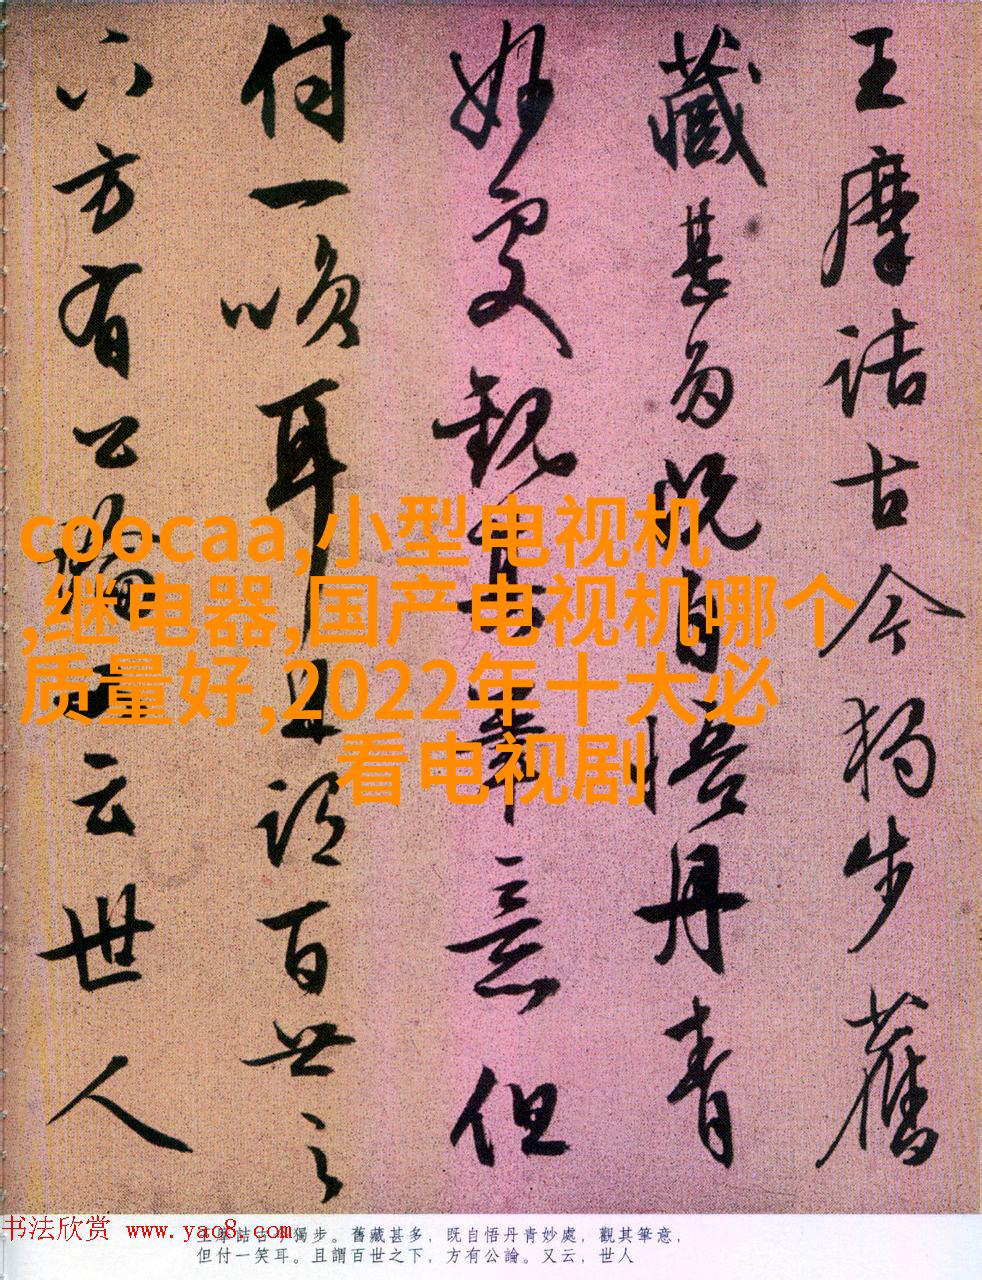 王摩詰古今獨步舊
藏甚多既自悟丹青
妙處觀其筆意但
付一咲耳且謂百世之
下方有公論又云世人
coocaa,小型电视机
,继电器,国产电视机哪个
质量好,2022年十大必
看电视剧
书法欣赏 www.yac8.com
王摩詰古今獨步。舊藏甚多，既自悟丹青妙處，觀其筆意，
但付一笑耳。且謂百世之下，方有公論。又云，世人